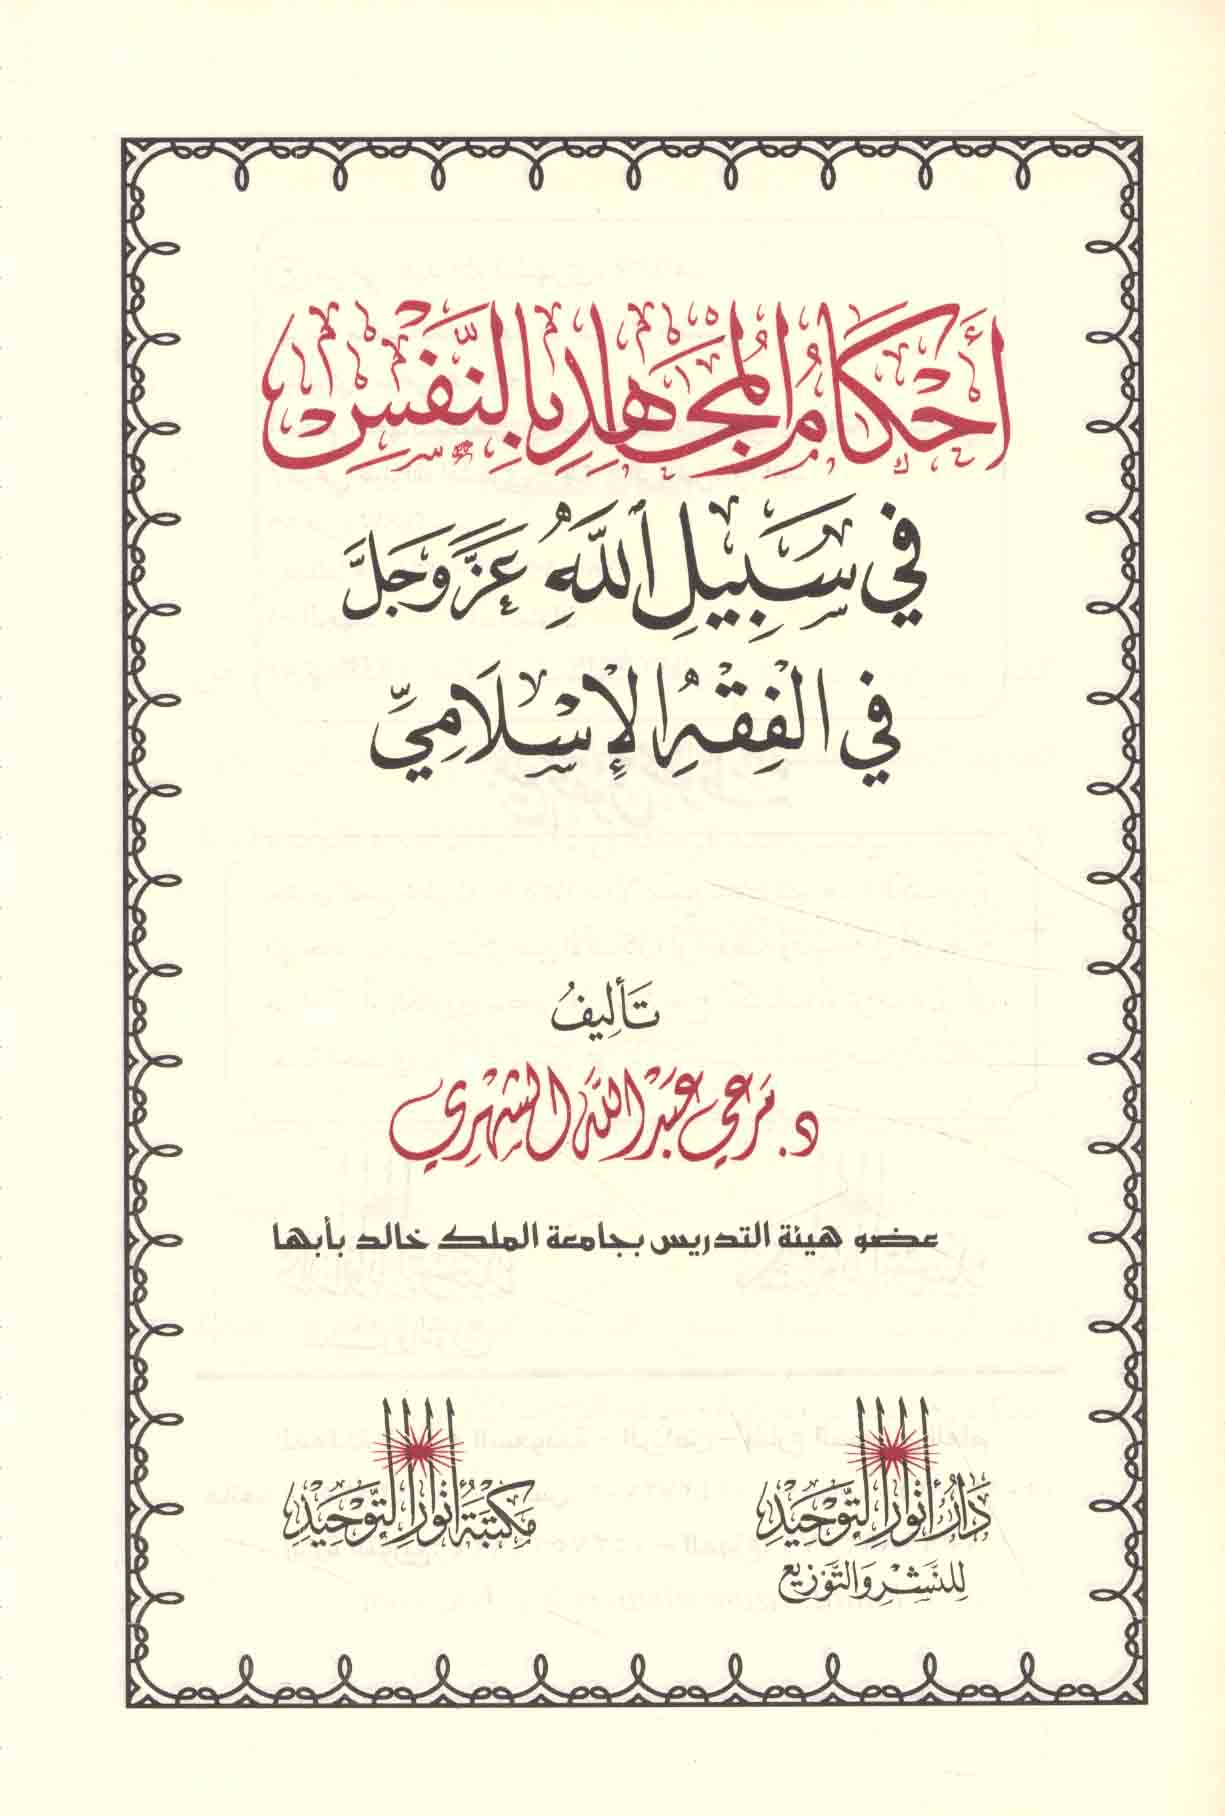 أَحْكَامُ الْمُجَاهِدِ بِالنَّفْسِ
فِي سَبِيلِ اللَّهِ عَزَّ وَجَلَّ
فِي الْفِقْهِ الْإِسْلَامِيِّ
تَأْلِيفُ
د. مرعي عبد الله الشهري
عضو هيئة التدريس بجامعة الملك خالد بأبها
دَارُ أَنْوَارِ التَّوْحِيدِ
لِلنَّشْرِ وَالتَّوْزِيعِ
مَكْتَبَةُ أَنْوَارِ التَّوْحِيدِ